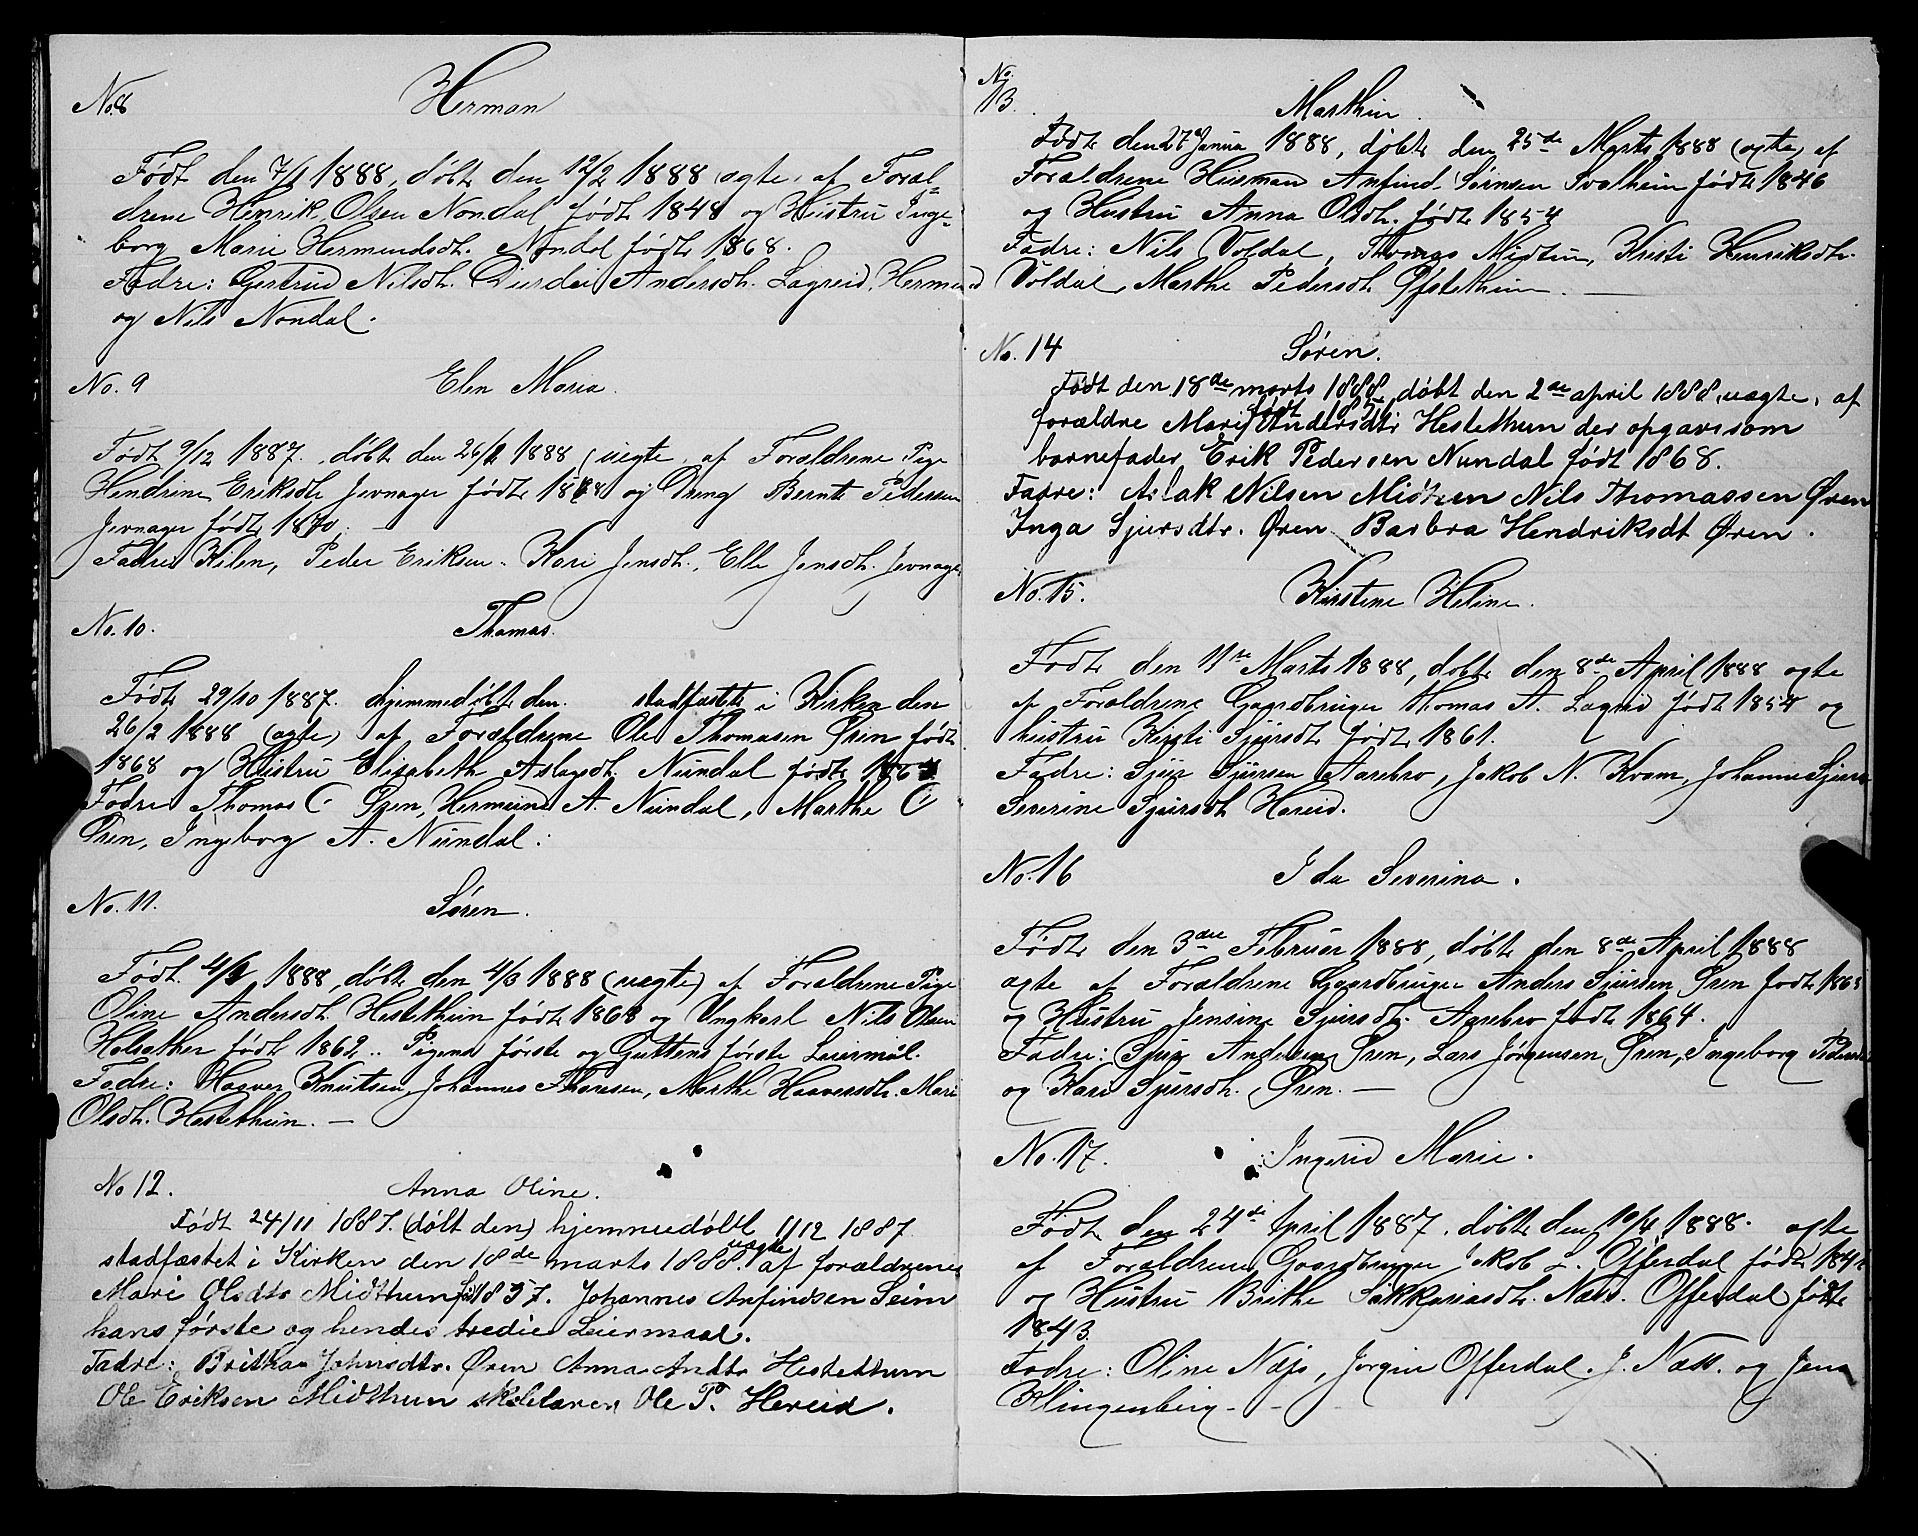 No. 8 Herman
Født den 7/1 1888, døbt den 12/2 1888 ægte, af Foræl-
drene Henrik Olsen Nondal født 1848 og Hustru Inge-
borg Marie Hermundsdt. Nondal født 1868.
Fadre: Gertrud Nilsdt. Andersdt. Lagreid, Hermund
og Nils Nondal.
No. 9 Elen Maria.
Født 9/12 1887. døbt den 26/2 1888 (uegte, af Forældrene Pige
Hendrine Eriksdt. Jevnager født og Dreng Bernt Pedersen
Jevnager født 1870.
Fadre Kilen, Peder Eriksen, Kari Jensdt., Elle Jensdt. Jevnager
No. 10. Thomas.
Født 29/10 1887. hjemmedøbt den stadfæstet i Kirken den
26/2 1888 (ægte) af Forældrene Ole Thomasen Øren født
1868 og Hustru Elisabeth Aslagsdt. Nundal født
Fadre Thomas O Øren, Hermund A. Nundal, Marthe O
Øren, Ingeborg A. Nundal.
No. 11. Søren.
Født 1888, døbt den 4/3 1888 (uægte) af Forældrene Pige
Oline Andersdt. Hestethun født 1868 og Ungkarl Nils Olsen
Helsether født 1862.. Pigens første og Guttens første Leiermål.
Fadre: Haaver Knutsen, Johannes Thomsen, Marthe Haaversdt. Mari
Olsdt. Hestethun. —
No 12. Anna Oline.
Født 24/11 1887. (døbt den) hjemmedøbt 1/12 1887
stadfæstet i Kirken den 18de marts 1888. uægte af forældrene
Mari Olsdtr Midthun fød 1857. Johannes Anfindsen Seim
hans første og hendes tredie Leiermaal.
Fadre: Britha Johnsdtr. Øren Anna Andtr Hestethum
Ole Eriksen Midthun Ole P. Hereid.
No. 13. Marthin.
Født den 27 Janua 1888, døbt den 25de Marts 1888 (ægte) af
Forældrene Husmand Anfind Sørnsen Svalheim født 1846
og Hustru Anna Olsdt. født 1854
Fadre: Nils Voldal, Thomas Midtun, Kristi Henriksdt.
Voldal, Marthe Pedersdt. Ofstethun. —
No. 14 Søren.
Født den 18de marts 1888, døbt den 2de april 1888, uægte, af
forældre Mari født Andersdtr Hestethun der opgav som
barnefader Erik Pedersen Nundal født 1868.
Fadre: Aslak Nilsen Midtun Nils Thomassen Øren
Inga Sjursdtr. Øren Barbra Hendriksdt Øren.
No. 15. Kirstine Heline.
Født den 11te Marts 1888, døbt den 8de April 1888 ægte
af Forældrene Gaardbruger Thomas A. Lagrid født 1854 og
hustru Kirsti Sjursdt født 1861.
Fadre: Sjur Sjursen Aarebro, Jakob N. Kvam, Johanne Sjurs
Severine Sjursdt. Hareid.
No. 16 Ida Severina.
Født den 3die Februar 1888, døbt den 8de April 1888
ægte af Forældrene Gaardbruger Anders Sjursen Øren født
og Hustru Jensine Sjursdt. Aarebro født 1864.
Fadre: Sjur Andersen Øren, Lars Jørgensen Øren, Ingeborg Pedersdt
og Kari Sjursdt. Øren. —
No. 17. Ingerid Marie.
Født den 24de April 1887. døbt den 10/4 1888. ægte
af Forældrene Gaardbruger Jakob L. Offerdal født
og Hustru Brithe Sakkariasdt. Næss. Offerdal født
1843.
Fadre: Oline Næss, Jørgin Offerdal. J. Næss. og Jena
Klingenberg - - -